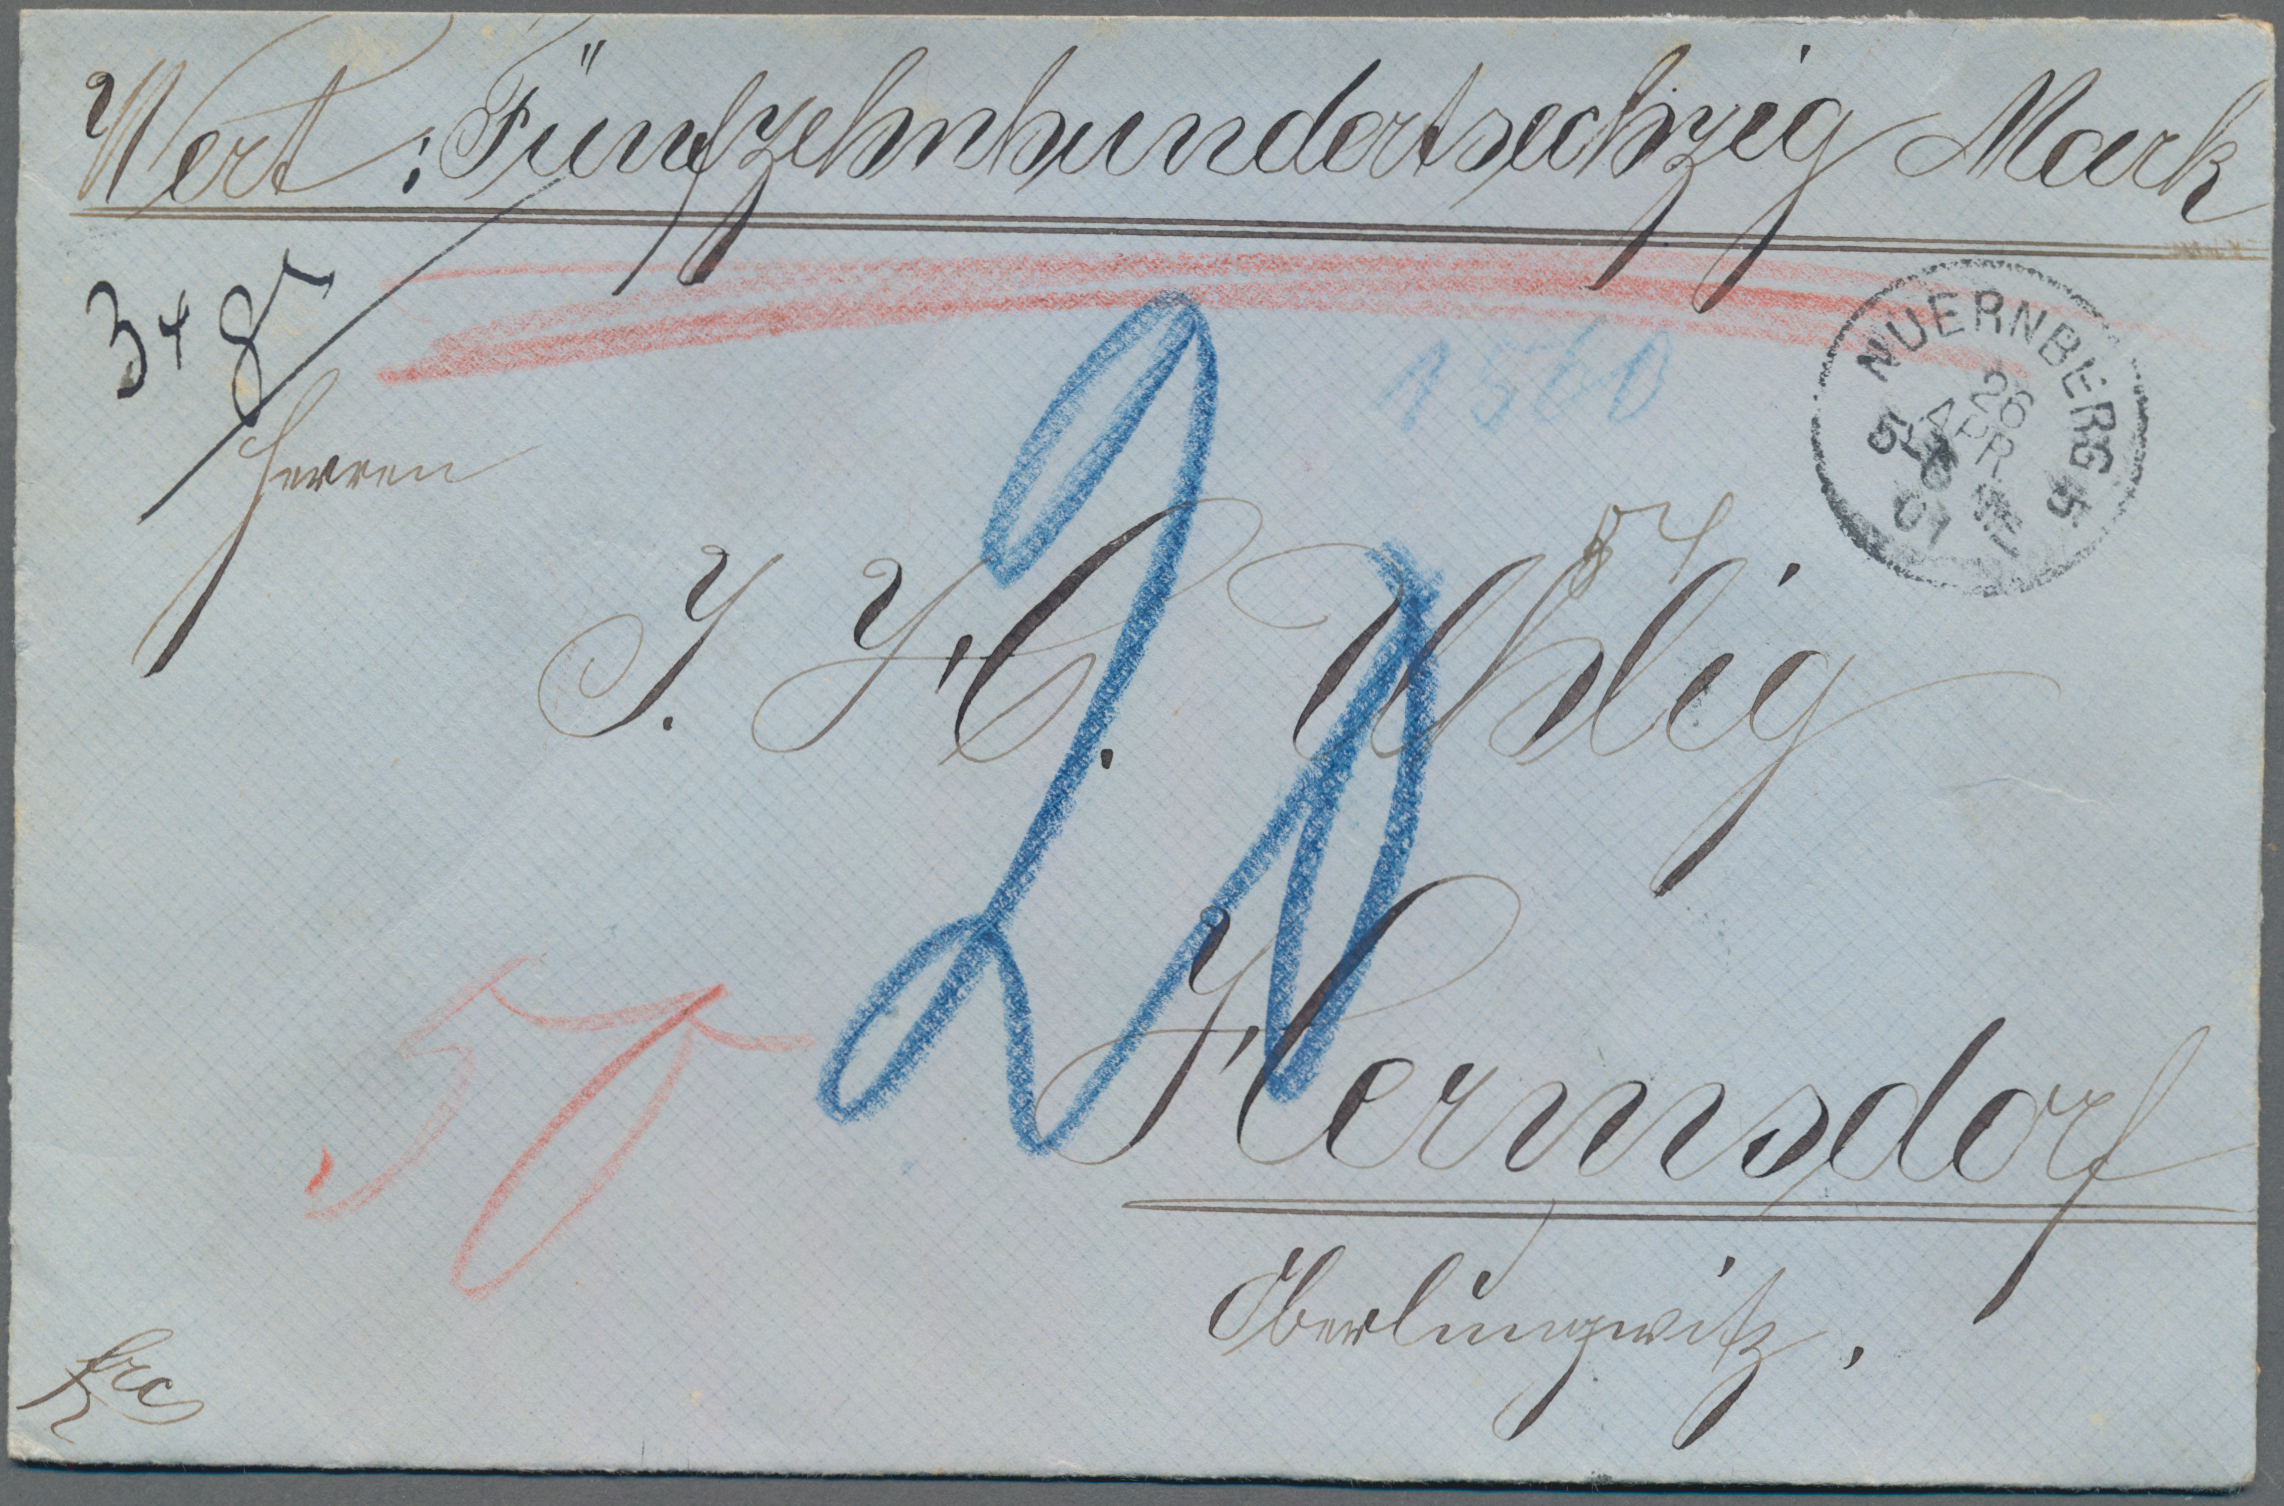 Wert: Fünfzehnhundertsechzig Mark
348
1560
NUERNBERG 5
26
APR
5-6 NM
01
Herren
54
J. H. Uhlig
20
Hermsdorf
50
Oberlungwitz.
frco